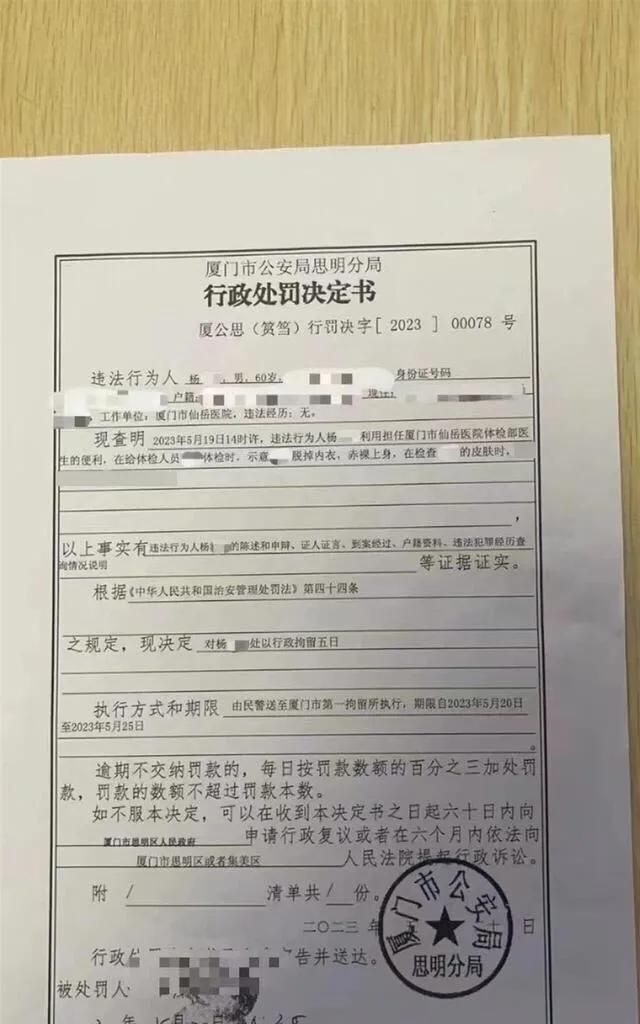 厦门市公安局思明分局
行政处罚决定书
厦公思（筼筜）行罚决字[ 2023 ] 00078 号
违法行为人 杨 ，男，60岁， 身份证号码
户籍 现住
，工作单位：厦门市仙岳医院，违法经历：无。
现查明 2023年5月19日14时许，违法行为人杨 利用担任厦门市仙岳医院体检部医
生的便利，在给体检人员 体检时，示意 脱掉内衣，赤裸上身，在检查 的皮肤时，
，
以上事实有违法行为人杨 的陈述和申辩、证人证言、到案经过、户籍资料、违法犯罪经历查
询情况说明 等证据证实。
根据《中华人民共和国治安管理处罚法》第四十四条
之规定，现决定 对杨 处以行政拘留五日
执行方式和期限 由民警送至厦门市第一拘留所执行，期限自2023年5月20日
至2023年5月25日
。
逾期不交纳罚款的，每日按罚款数额的百分之三加处罚
款，罚款的数额不超过罚款本数。
如不服本决定，可以在收到本决定书之日起六十日内向
厦门市思明区人民政府 申请行政复议或者在六个月内依法向
厦门市思明区或者集美区 人民法院提起行政诉讼。
附 / 清单共 / 份。
二〇二三 年 日
厦门市公安局
思明分局
行政 告并送达。
被处罚人
年 月 日